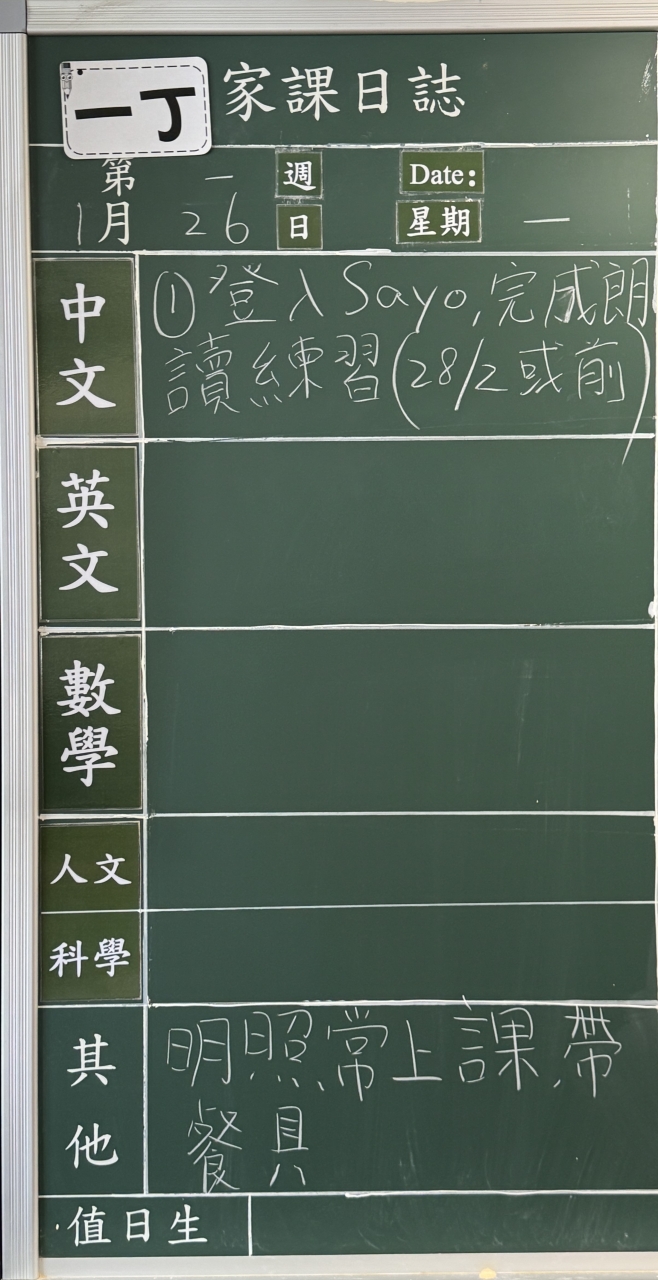 一丁 家課日誌
第 一 週 Date:
1月 26 日 星期 一
中文
①登入Sayo,完成朗
讀練習(28/2或前)
英文
數學
人文
科學
其他
明照常上課,帶
餐具
值日生